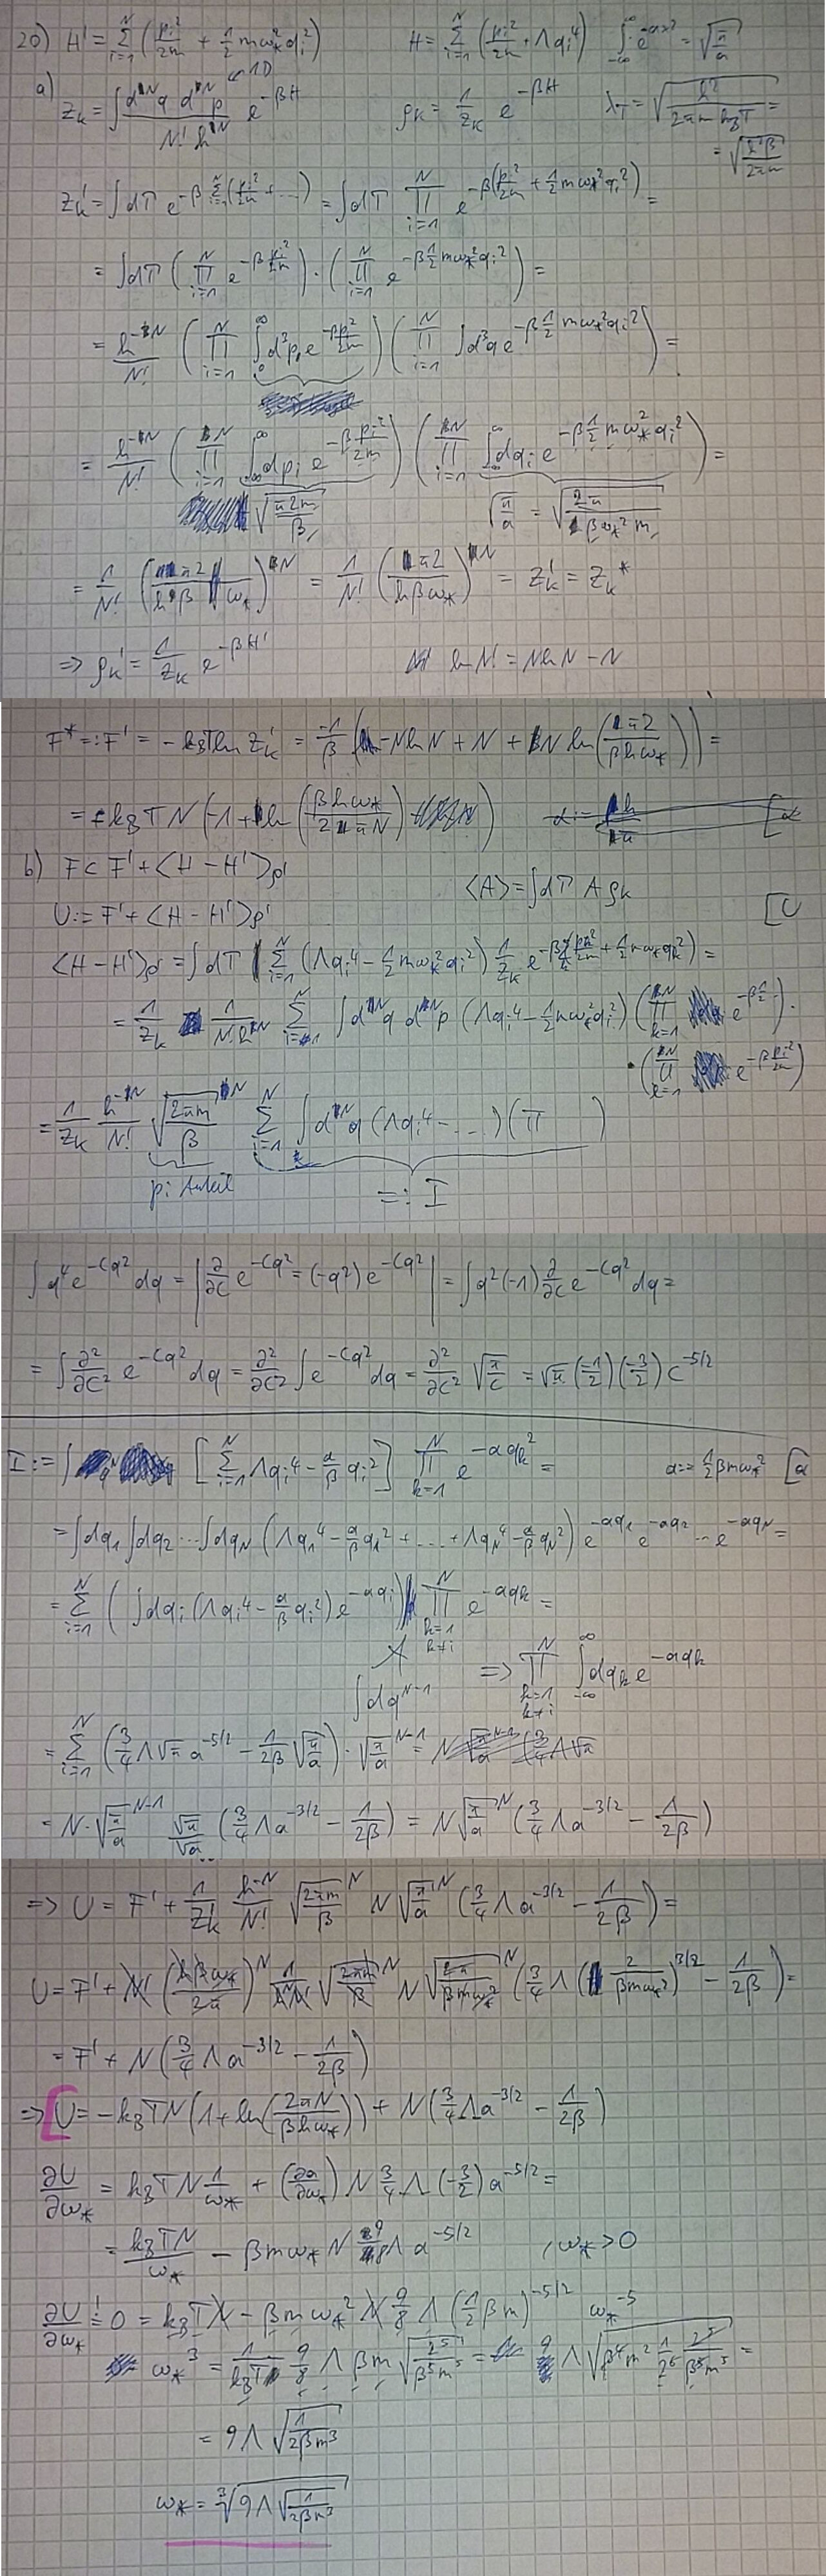 20) H' = Σ_{i=1}^{N} (p_i²/2m + 1/2 m ω_*² q_i²)    H = Σ_{i=1}^{N} (p_i²/2m + Λ q_i⁴)    ∫_{-∞}^{∞} e^{-ax²} = √(π/a)
a) Z_k = ∫ d^N q d^N p / (N! h^N) e^{-βH}    ρ_k = 1/Z_k e^{-βH}    λ_T = √(h²/(2π m k_B T)) =
↪ 1D
= √(h²β/2πm)
Z_k' = ∫dΓ e^{-β Σ_{i=1}^{N} (p_i²/2m + ...)} = ∫dΓ ∏_{i=1}^{N} e^{-β(p_i²/2m + 1/2 m ω_*² q_i²)} =
= ∫dΓ (∏_{i=1}^{N} e^{-β p_i²/2m}) · (∏_{i=1}^{N} e^{-β 1/2 m ω_*² q_i²}) =
= h^{-3N}/N! (∏_{i=1}^{N} ∫_0^∞ d³p e^{-β p²/2m}) (∏_{i=1}^{N} ∫ d³q e^{-β 1/2 m ω_*² q_i²}) =
= h^{-N}/N! (∏_{i=1}^{N} ∫_{-∞}^{∞} dp_i e^{-β p_i²/2m}) (∏_{i=1}^{N} ∫_{-∞}^{∞} dq_i e^{-β 1/2 m ω_*² q_i²}) =
√(π2m/β)    √(π/a) = √(2π/(β ω_*² m))
= 1/N! (π2/(hβ ω_*))^N = 1/N! (π2/(hβω_*))^N = Z_k' = Z_k^*
=> ρ_k' = 1/Z_k e^{-βH'}    ln N! = N ln N - N
F^* =: F' = -k_B T ln Z_k' = -1/β (-N ln N + N + N ln(π2/(βhω_*))) =
= k_B T N (-1 + ln(βhω_*/2πN))
b) F ≤ F' + <H - H'>_{ρ'}    <A> = ∫dΓ A ρ_k
U := F' + <H - H'>_{ρ'}    [U
<H - H'>_{ρ'} = ∫dΓ Σ_{i=1}^{N} (Λq_i⁴ - 1/2 m ω_*² q_i²) 1/Z_k e^{-β Σ_k (p_k²/2m + 1/2 m ω_* q_k²)} =
= 1/Z_k 1/(N! h^N) Σ_{i=1}^{N} ∫ d^N q d^N p (Λq_i⁴ - 1/2 m ω_*² q_i²) (∏_{k=1}^{N} e^{-β 1/2}) ·
· (∏_{l=1}^{N} e^{-β p_i²/2m})
= 1/Z_k h^{-N}/N! √(2πm/β)^N Σ_{i=1}^{N} ∫ d^N q (Λq_i⁴ - ...) (∏ )
p_i Anteil    =: I
∫ q⁴ e^{-Cq²} dq = | ∂/∂C e^{-Cq²} = (-q²) e^{-Cq²} | = ∫ q² (-1) ∂/∂C e^{-Cq²} dq =
= ∫ ∂²/∂C² e^{-Cq²} dq = ∂²/∂C² ∫ e^{-Cq²} dq = ∂²/∂C² √(π/C) = √π (-1/2)(-3/2) C^{-5/2}
I := ∫ [Σ_{i=1}^{N} Λq_i⁴ - a/β q_i²] ∏_{k=1}^{N} e^{-a q_k²} =    a := 1/2 β m ω_*²    [a
= ∫dq_1 ∫dq_2 ... ∫dq_N (Λq_1⁴ - a/β q_1² + ... + Λq_N⁴ - a/β q_N²) e^{-aq_1} e^{-aq_2} ... e^{-aq_N} =
= Σ_{i=1}^{N} (∫dq_i (Λq_i⁴ - a/β q_i²) e^{-aq_i}) ∏_{k=1, k≠i}^{N} e^{-aq_k} =
∫dq^{N-1}    => ∏_{k=1, k≠i}^{N} ∫_{-∞}^{∞} dq_k e^{-aq_k}
= Σ_{i=1}^{N} (3/4 Λ√π a^{-5/2} - 1/2β √(π/a)) · √(π/a)^{N-1} = N √(π/a)^{N-1} (3/4 Λ√π
= N · √(π/a)^{N-1} √π/√a (3/4 Λ a^{-3/2} - 1/2β) = N √(π/a)^N (3/4 Λ a^{-3/2} - 1/2β)
=> U = F' + 1/Z_k' h^{-N}/N! √(2πm/β)^N N √(π/a)^N (3/4 Λ a^{-3/2} - 1/2β) =
U = F' + N! (hβω_*/2π)^N 1/(h^N N!) √(2πm/β)^N N √(2π/(βmω_*²))^N (3/4 Λ (2/(βmω_*²))^{3/2} - 1/2β) =
= F' + N (3/4 Λ a^{-3/2} - 1/2β)
=> [U = -k_B T N (1 + ln(2πN/(βhω_*))) + N (3/4 Λ a^{-3/2} - 1/2β)
∂U/∂ω_* = k_B T N 1/ω_* + (∂a/∂ω_*) N 3/4 Λ (-3/2) a^{-5/2} =
= k_B T N/ω_* - β m ω_* N 9/8 Λ a^{-5/2}    , ω_* > 0
∂U/∂ω_* != 0 = k_B T N - β m ω_*² N 9/8 Λ (1/2 β m)^{-5/2} ω_*^{-5}
ω_*³ = 1/(k_B T) 9/8 Λ β m √(2⁵/(β⁵m⁵)) = 9 Λ √(β⁴ m² 1/2⁶ 2⁵/(β⁵m⁵)) =
= 9 Λ √(1/(2βm³))
ω_* = ∛(9 Λ √(1/(2βm³)))